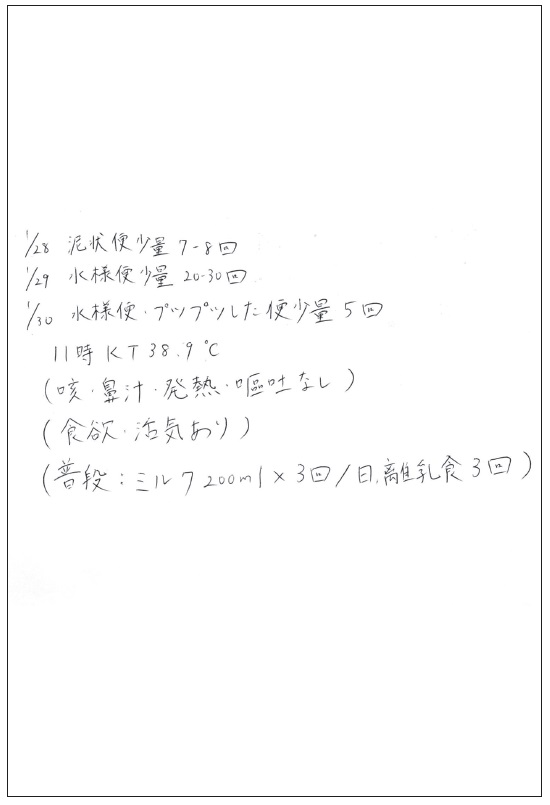 1/28 泥状便少量 7-8回
1/29 水様便少量 20-30回
1/30 水様便・プツプツした便少量 5回
11時 KT 38.9℃
(咳・鼻汁・発熱・嘔吐なし)
(食欲・活気あり)
(普段：ミルク 200ml × 3回/日、離乳食 3回)